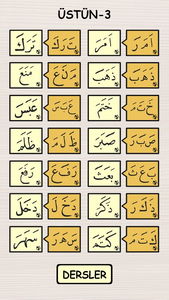 ÜSTÜN-3
اَ مَ رَ اَمَرَ تَ رَ كَ تَرَكَ
ذَ هَ بَ ذَهَبَ مَ نَ عَ مَنَعَ
خَ تَ مَ خَتَمَ عَ بَ سَ عَبَسَ
صَ بَ رَ صَبَرَ ظَ لَ مَ ظَلَمَ
بَ عَ ثَ بَعَثَ رَ فَ عَ رَفَعَ
ذَ كَ رَ ذَكَرَ دَ خَ لَ دَخَلَ
كَ تَ مَ كَتَمَ سَ هَ رَ سَهَرَ
DERSLER